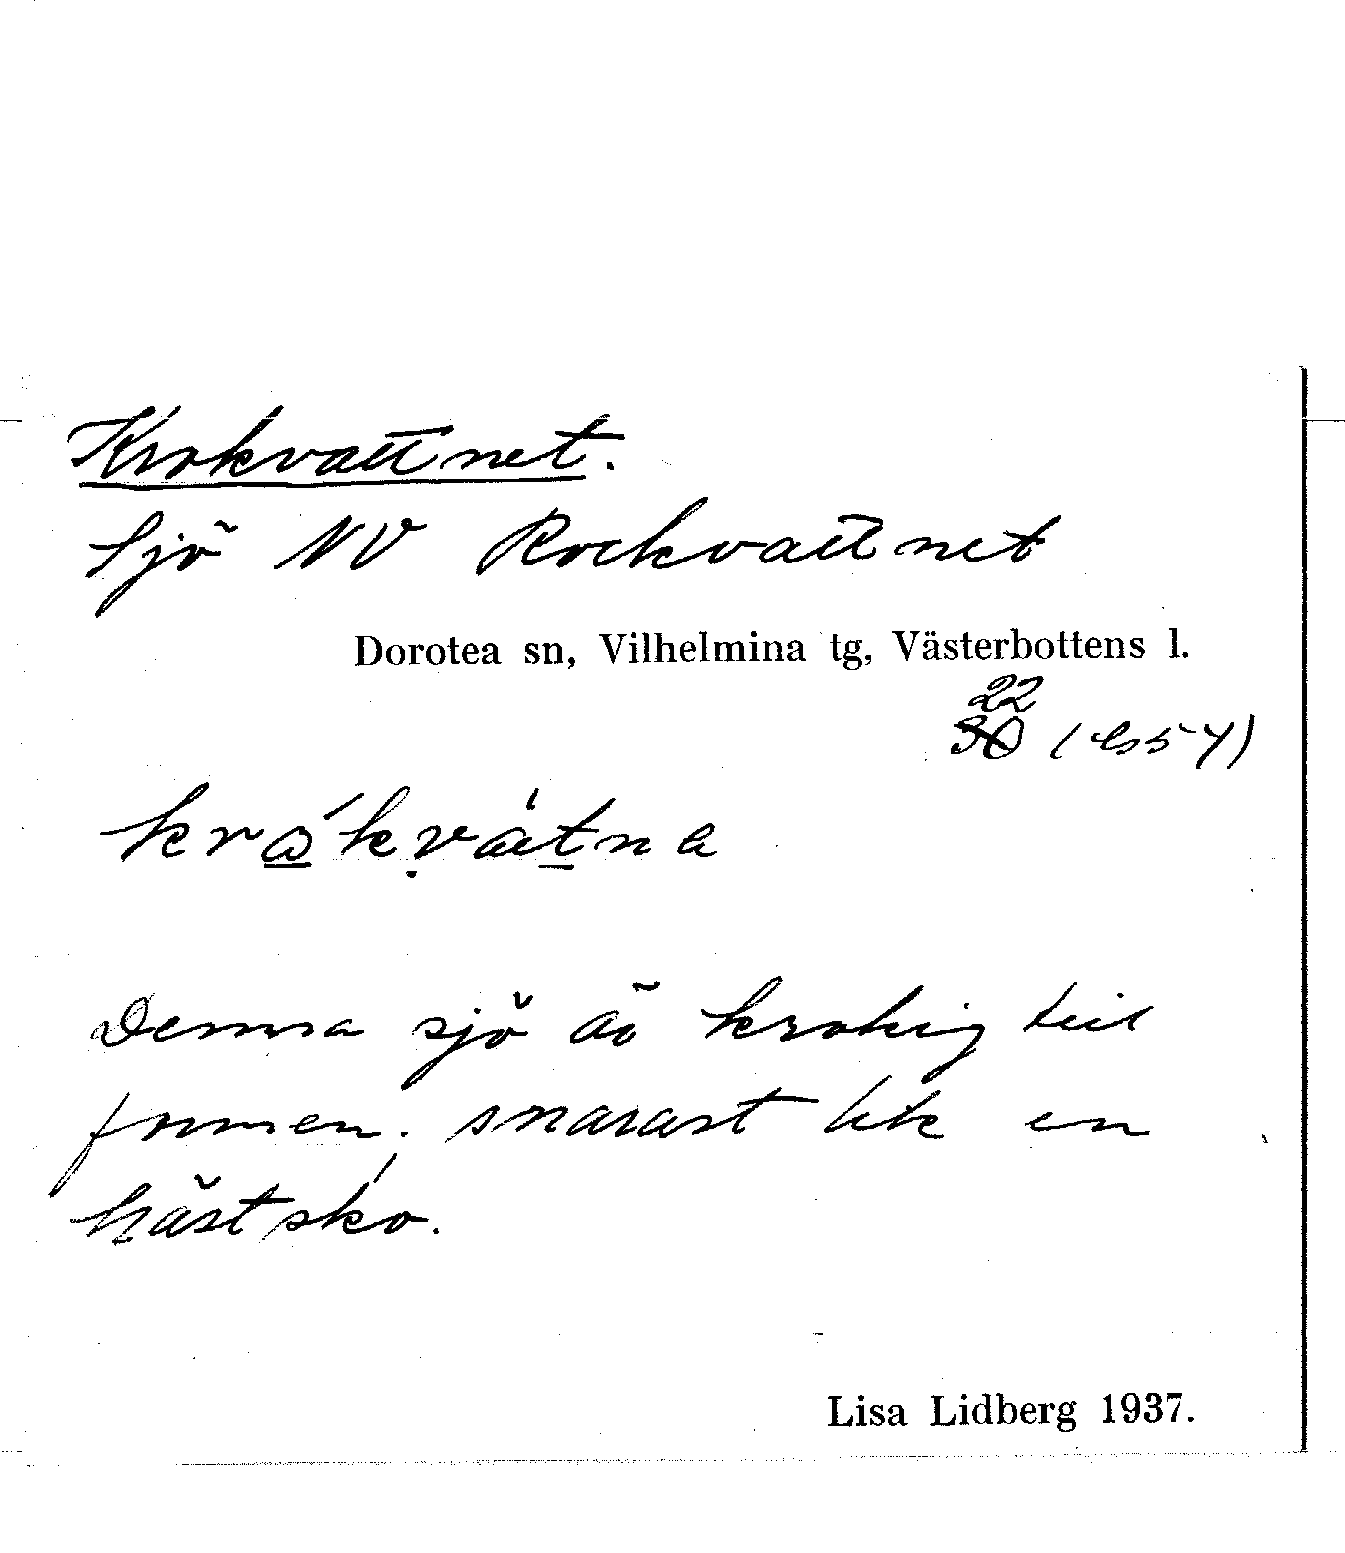 Krokvattnet.
Sjö NV Rockvattnet
Dorotea sn, Vilhelmina tg, Västerbottens l.
22
30
krɷ́kvȧt̲na
Denna sjö är krokig till
formen. snarast lik en
hästsko.
Lisa Lidberg 1937.